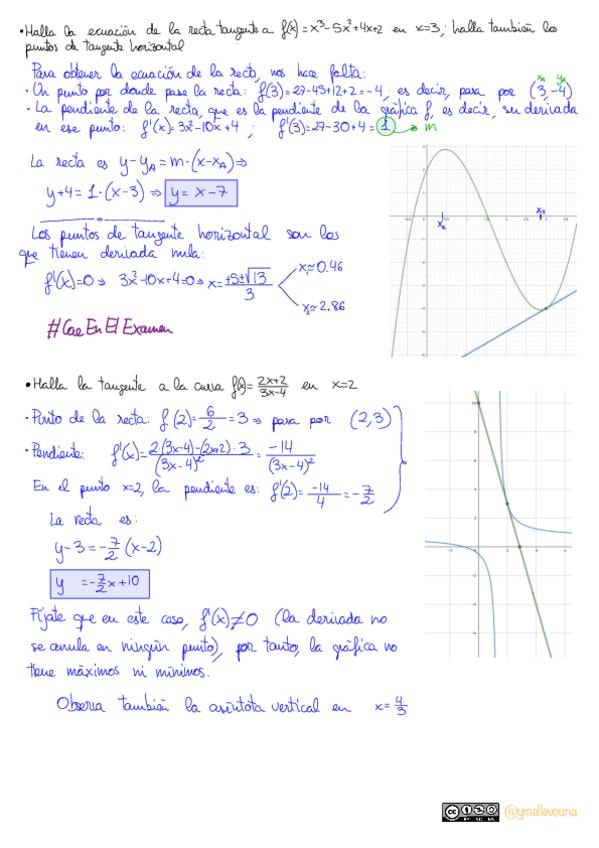 • Halla la ecuación de la recta tangente a f(x) = x³-5x²+4x+2 en x=3; halla también los
puntos de tangente horizontal
Para obtener la ecuación de la recta, nos hace falta:
• Un punto por donde pase la recta: f(3)=27-45+12+2=-4; es decir, pasa por (3,-4)
• La pendiente de la recta, que es la pendiente de la gráfica f, es decir, su derivada
en ese punto: f'(x)=3x²-10x+4 ; f'(3)=27-30+4=1 → m
La recta es y-y_A=m·(x-x_A) ⇒
y+4=1·(x-3) ⇒ y=x-7
Los puntos de tangente horizontal son los
que tienen derivada nula:
f'(x)=0 ⇒ 3x²-10x+4=0 ⇒ x=+5±√13/3
x₁≈0.46
x₂≈2.86
#CaeEnElExamen
• Halla la tangente a la curva f(x)=2x+2/3x-4 en x=2
• Punto de la recta: f(2)=6/2=3 ⇒ pasa por (2,3)
• Pendiente: f'(x)=2(3x-4)-(2x+2)·3/(3x-4)²=-14/(3x-4)²
En el punto x=2, la pendiente es: f'(2)=-14/4=-7/2
La recta es:
y-3=-7/2(x-2)
y =-7/2x+10
Fíjate que en este caso, f'(x)≠0 (la derivada no
se anula en ningún punto), por tanto, la gráfica no
tiene máximos ni mínimos.
Observa también la asíntota vertical en x=4/3
@ymellevouna